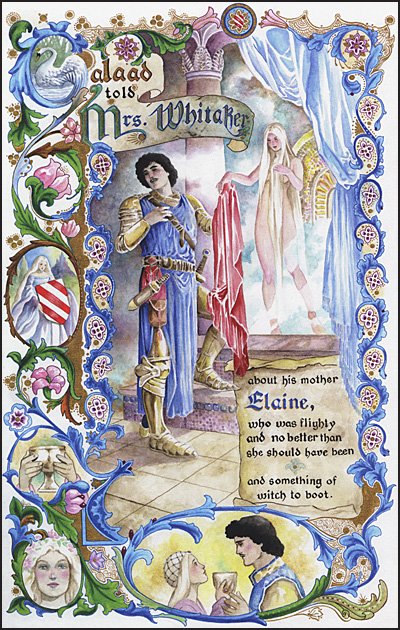 Galaad
told
Mrs. Whitaker
about his mother
Elaine,
who was flighty
and no better than
she should have been
and something of
witch to boot.